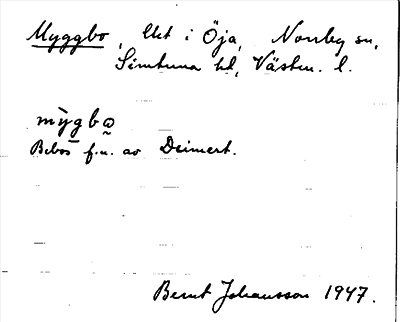 Myggbo, lht i Öja, Norrby sn,
Simtuna hd, Västm. l.
mỳgbω̰
Bebos f.n. av Deimert.
Bernt Johansson 1947.